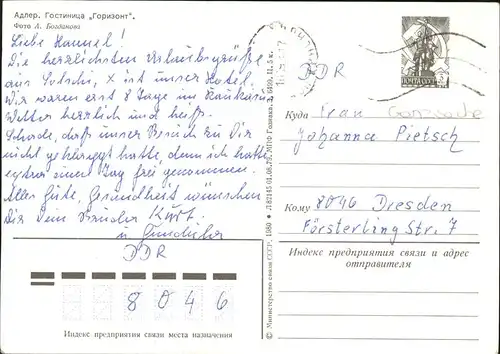 Адлер. Гостиница „Горизонт“.
Фото А. Богданова
Liebe Hannel!
Die herzlichsten Urlaubsgrüße
aus Sotschi, x ist unser Hotel.
Wir waren erst 8 Tage im Kaukasus
Wetter herrlich und heiß.
Schade, daß unser Besuch zu Dir
nicht geklappt hatte, denn ich hatte
extra einen Tag frei genommen.
Alles Gute, Gesundheit wünschen
Dir Dein Bruder Kurt
u.
DDR
8046
Индекс предприятия связи места назначения
© Министерство связи СССР. 1980 ● Л 62145 01.08.79. МПФ Гознака. З. 6499. Ц. 5 к.
ПОЧТА СССР
DDR
Куда Frau
Johanna Pietsch
Кому 8046 Dresden
Försterling Str. 7
Индекс предприятия связи и адрес
отправителя